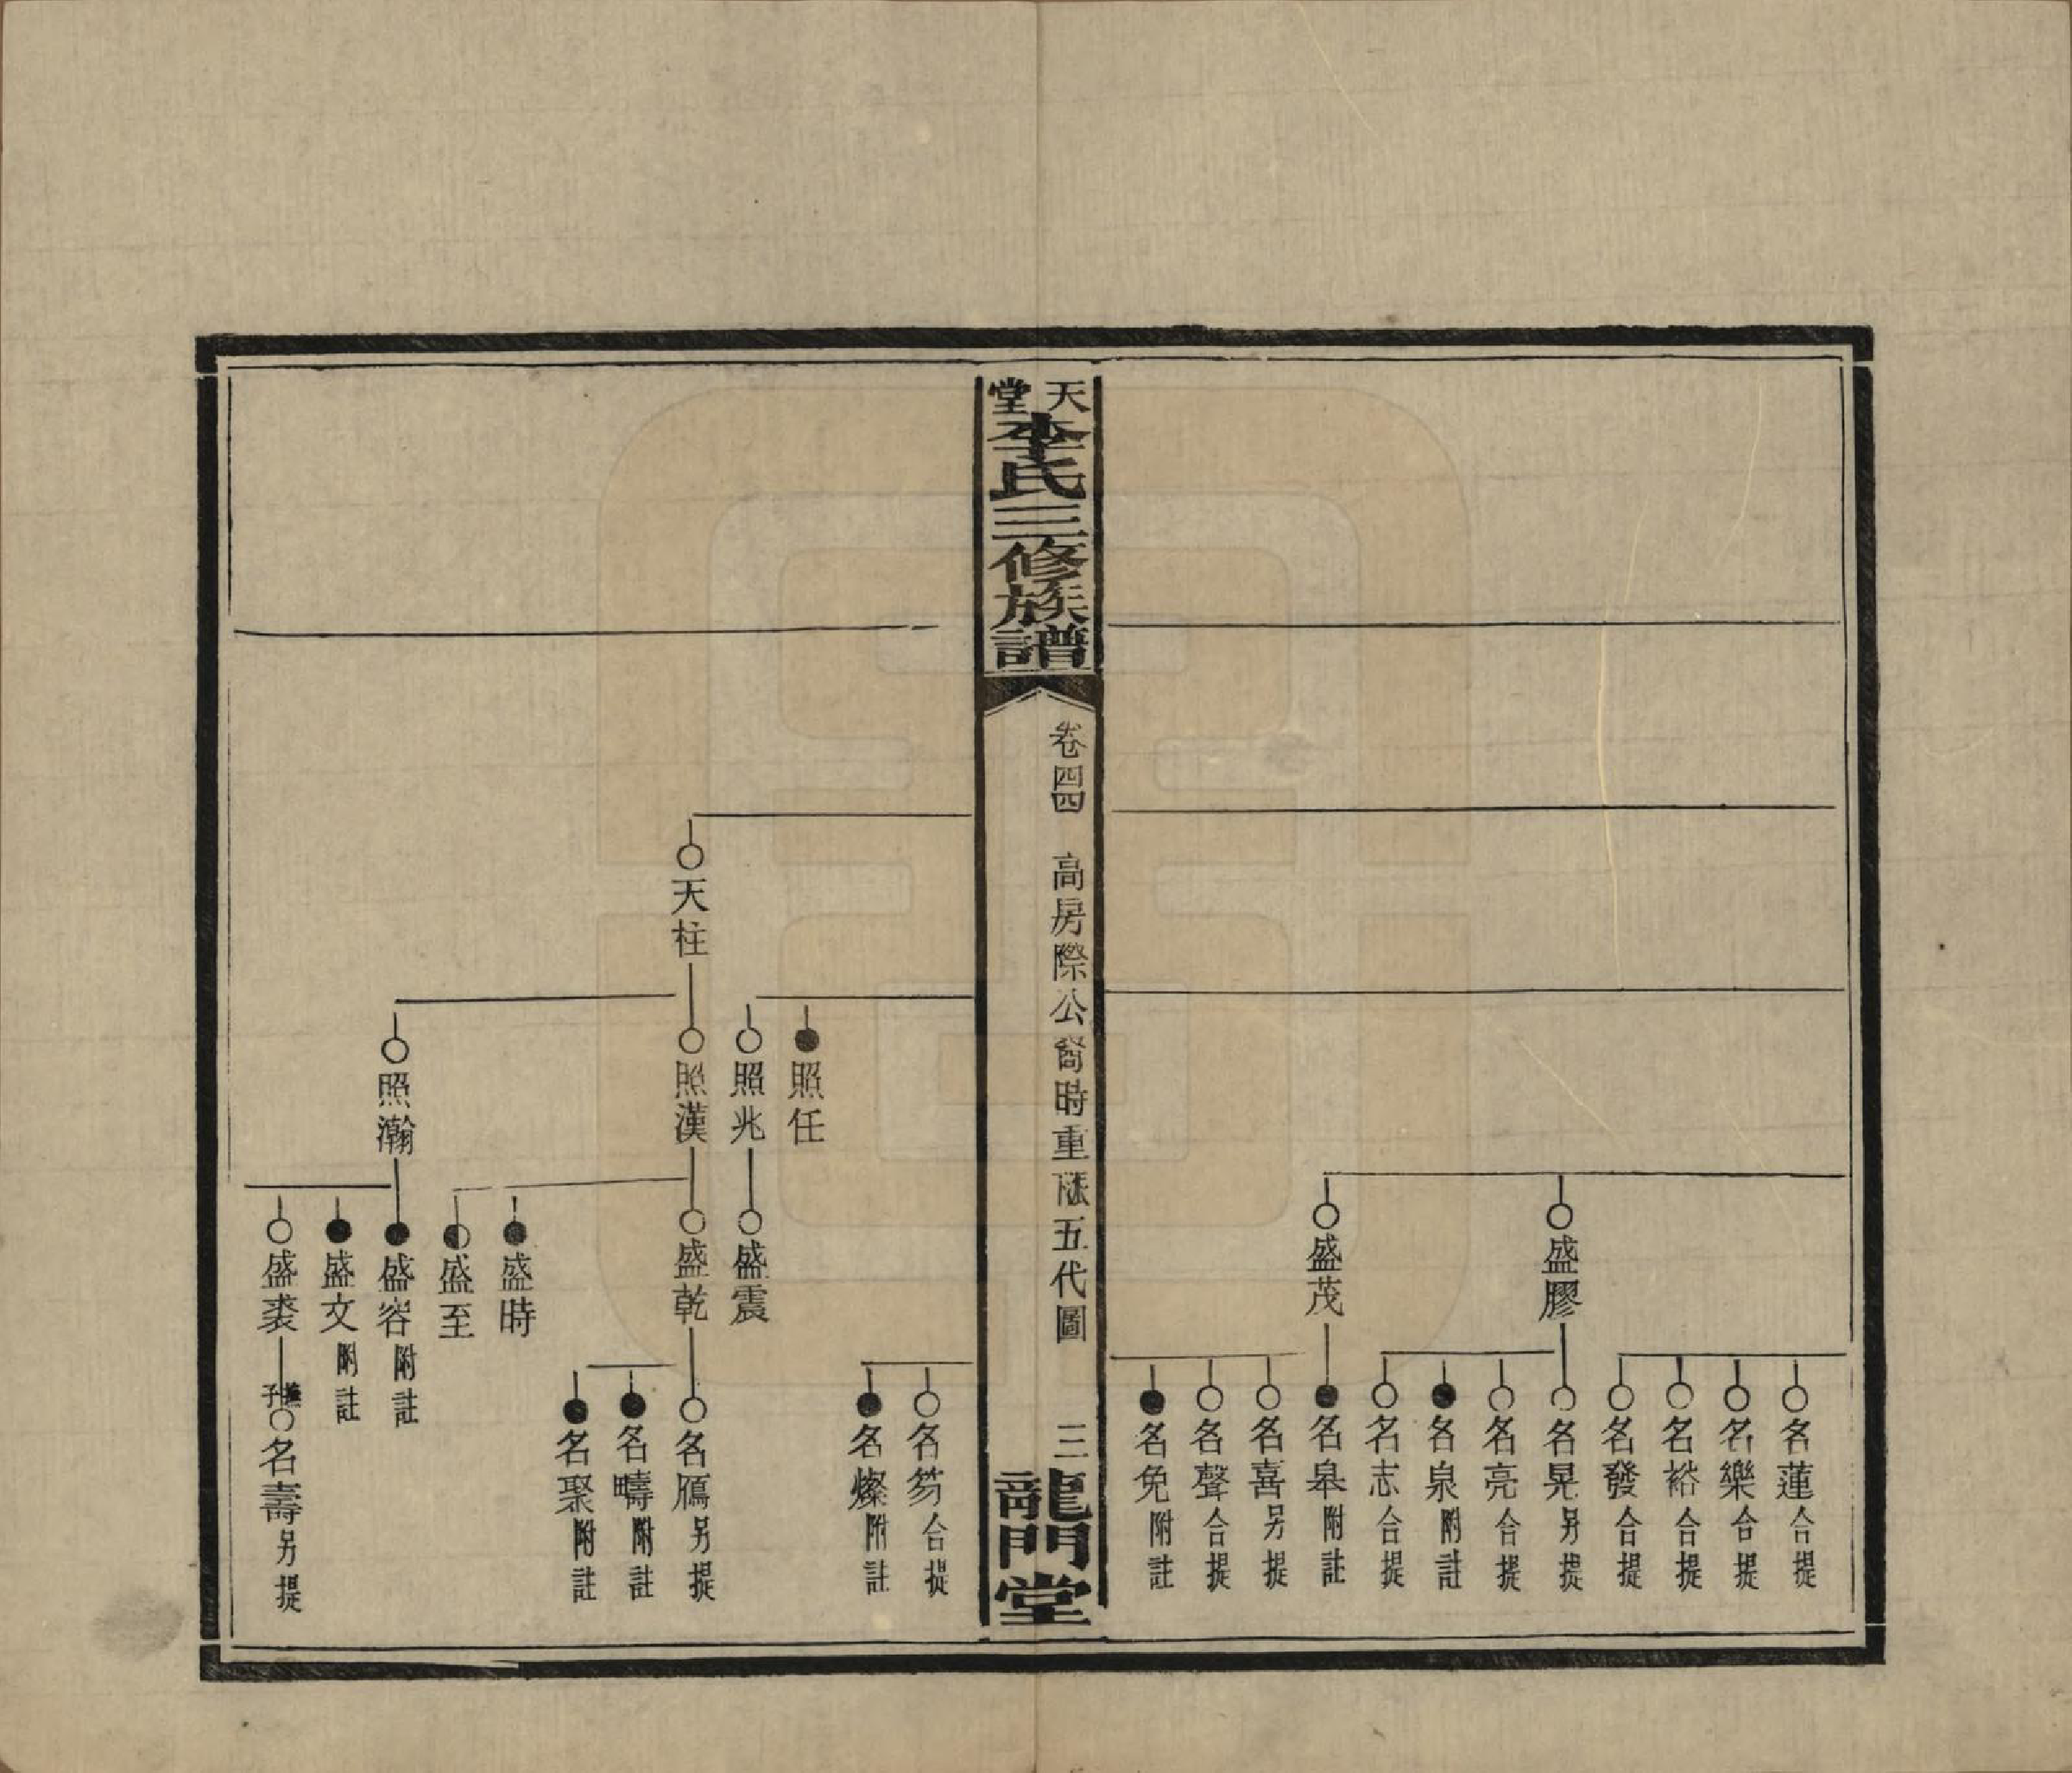 名蓮合提
名樂合提
名裕合提
名發合提
盛膠
名晃另提
名亮合提
名泉附註
名志合提
盛茂
名皋附註
名喜另提
名聲合提
名免附註
天堂李氏三修族譜
卷四四
高房際公裔時重派五代圖
三
龍門堂
名芴合提
名燦附註
照任
照兆
盛震
天柱
照漢
盛乾
名鴈另提
名疇附註
名聚附註
盛時
盛至
照瀚
盛容附註
盛文附註
盛裘
子
名壽另提